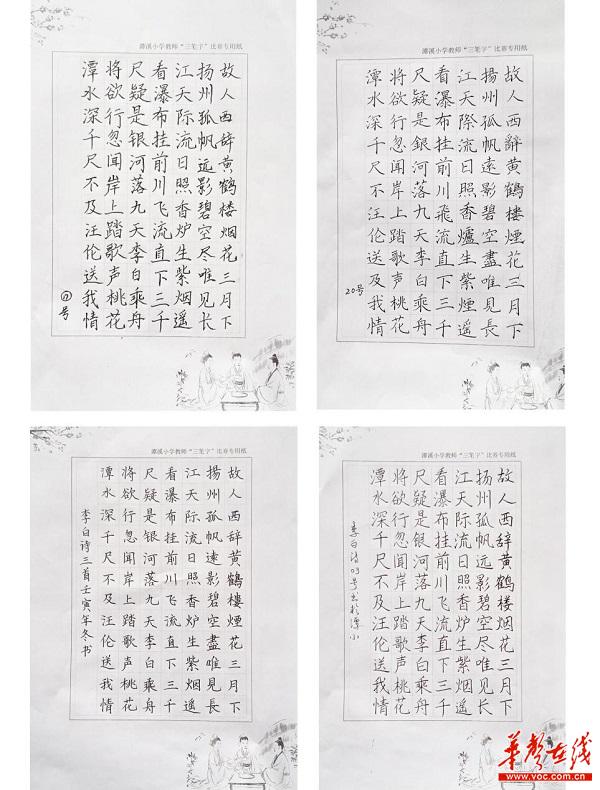 潭溪小学教师“三笔字”比赛专用纸
故人西辞黄鹤楼烟花三月下
扬州孤帆远影碧空尽唯见长
江天际流日照香炉生紫烟遥
看瀑布挂前川飞流直下三千
尺疑是银河落九天李白乘舟
将欲行忽闻岸上踏歌声桃花
潭水深千尺不及汪伦送我情
号
潭溪小学教师“三笔字”比赛专用纸
故人西辭黄鶴樓煙花三月下
揚州孤帆遠影碧空盡唯見長
江天際流日照香爐生紫煙遥
看瀑布挂前川飛流直下三千
尺疑是銀河落九天李白乘舟
將欲行忽聞岸上踏歌声桃花
潭水深千尺不及汪伦送我情
20号
潭溪小学教师“三笔字”比赛专用纸
故人西辞黄鶴樓煙花三月下
揚州孤帆遠影碧空盡唯見長
江天际流日照香炉生紫烟遥
看瀑布挂前川飞流直下三千
尺疑是银河落九天李白乘舟
將欲行忽闻岸上踏歌聲桃花
潭水深千尺不及汪伦送我情
李白诗三首壬寅年冬书
潭溪小学教师“三笔字”比赛专用纸
故人西辞黄鹤楼烟花三月下
扬州孤帆远影碧空尽唯见长
江天际流日照香炉生紫烟遥
看瀑布挂前川飞流直下三千
尺疑是银河落九天李白乘舟
将欲行忽闻岸上踏歌声桃花
潭水深千尺不及汪伦送我情
李白诗03号书于潭小
华声在线
www.voc.com.cn